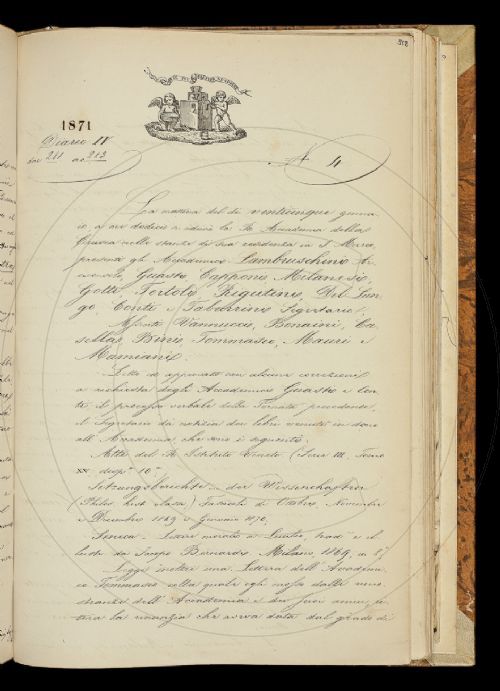 1871
Diario IV
da 211 a 213
N. 4
La mattina del dì venticinque genna-
io, a ore dodici si adunò la R. Accademia della
Crusca nelle stanze di sua residenza in S. Marco,
presenti gli Accademici Lambruschini Ar-
ciconsolo, Guasti, Capponi, Milanesi,
Gotti, Tortoli, Rigutini, Del Lun-
go, Conti e Tabarrini Segretario.
Assenti Vannucci, Bonaini, Ca-
sella, Bini, Tommaseo, Mauri e
Mamiani.
Letto ed approvato con alcune correzioni
a richiesta degli Accademici Guasti e Con-
ti, il processo verbale della Tornata precedente,
il Segretario dà notizia dei libri venuti in dono
all'Accademia, che sono i seguenti:
Atti del R. Istituto Veneto (Serie III. Tomo
XV. disp. 10.
Sitzungsberichte der Wissenchaften
(Philos. hist. classe) Fascicoli di Ottobre, Novembre
e Dicembre 1869 e Gennaio 1870.
Seneca - Lettere morali a Lucilio, trad. e
da Jacopo Bernardi, Milano, 1869, in 8.
Legge inoltre una Lettera dell'Accademi-
co Tommaseo colla quale egli mosso dalle rimo-
stranze dell'Accademia e dei suoi amici, ri-
tira la rinunzia che aveva data dal grado di